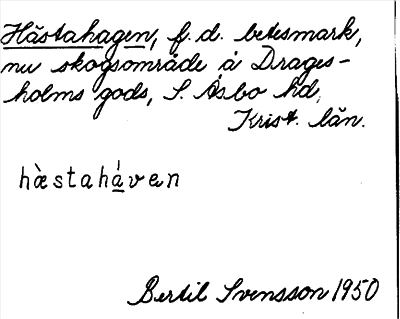 Hästahagen, f.d. betesmark,
nu skogsområde å Drages-
holms gods, S. Åsbo hd,
Krist. län.
hæ̀stahá̱ven
Bertil Svensson 1950